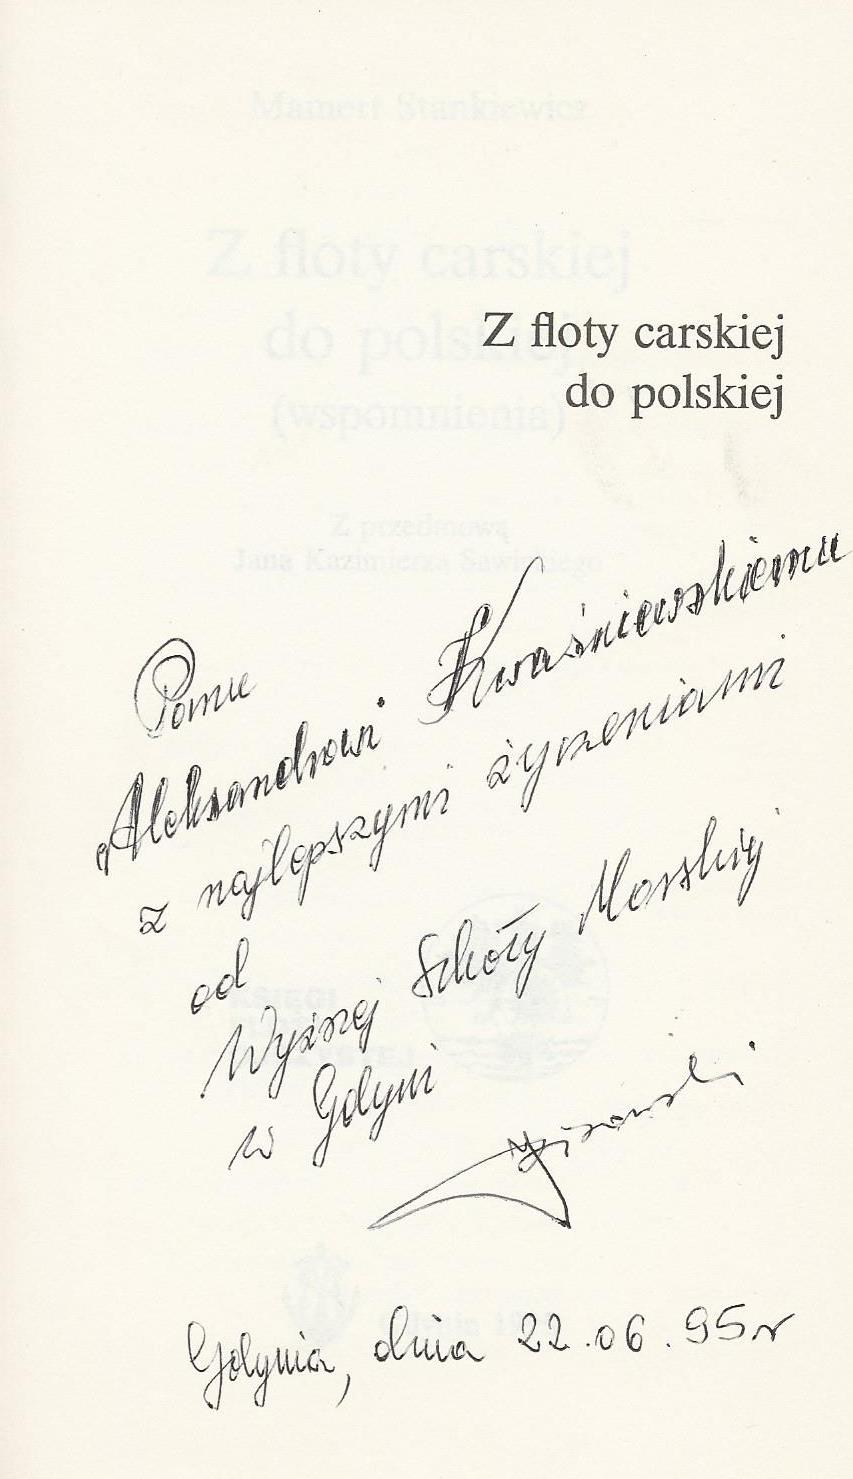 Mamert Stankiewicz
Z floty carskiej
do polskiej
(wspomnienia)
Z przedmową
Jana Kazimierza Sawickiego
Z floty carskiej
do polskiej
Panu
Aleksandrowi Kwaśniewskiemu
z najlepszymi życzeniami
od
Wyższej Szkoły Morskiej
w Gdyni
Gdynia, dnia 22.06.95r